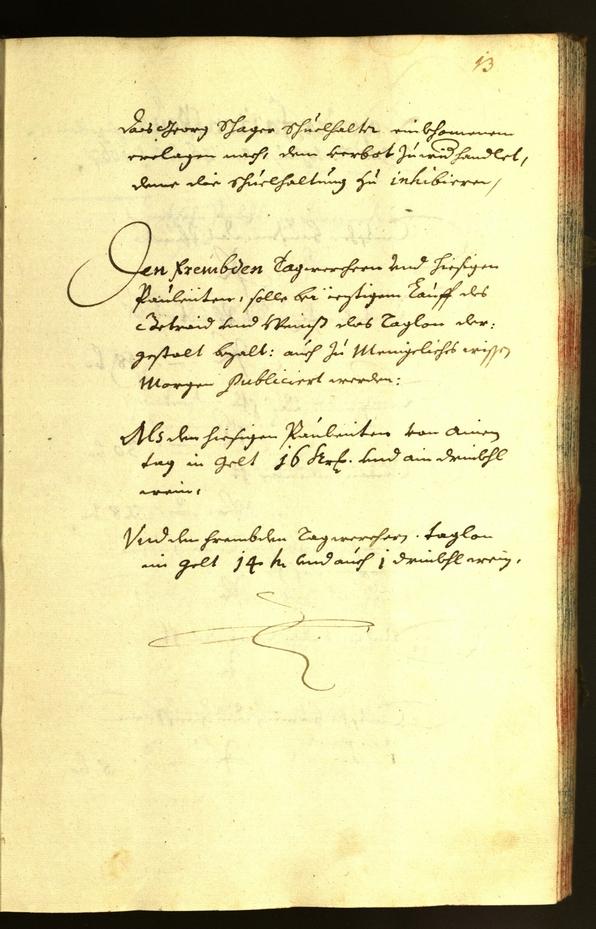 13
Das Georg Schager Schuelhalter einkhomenem
verlagen nach, dem verbot zuwid handlet,
deme die Schuelhaltung zu inhibieren /
Den frembden Tagwerchern vnd hiesigen
Pauleuten, solle bei iezigem Kauff des
Getraid und Weinß das Taglon der:
gestalt bezalt: auch zu Meniglichs wissen
Morgen Publiciert werden:
Als den hiesigen Pauleuten von ainem
tag in gelt 16 kr. und ain drinkhl
wein,
Vnd den frembden Tagwerchern. taglon
in gelt 14 kr und auch 1 drinkhl wein.